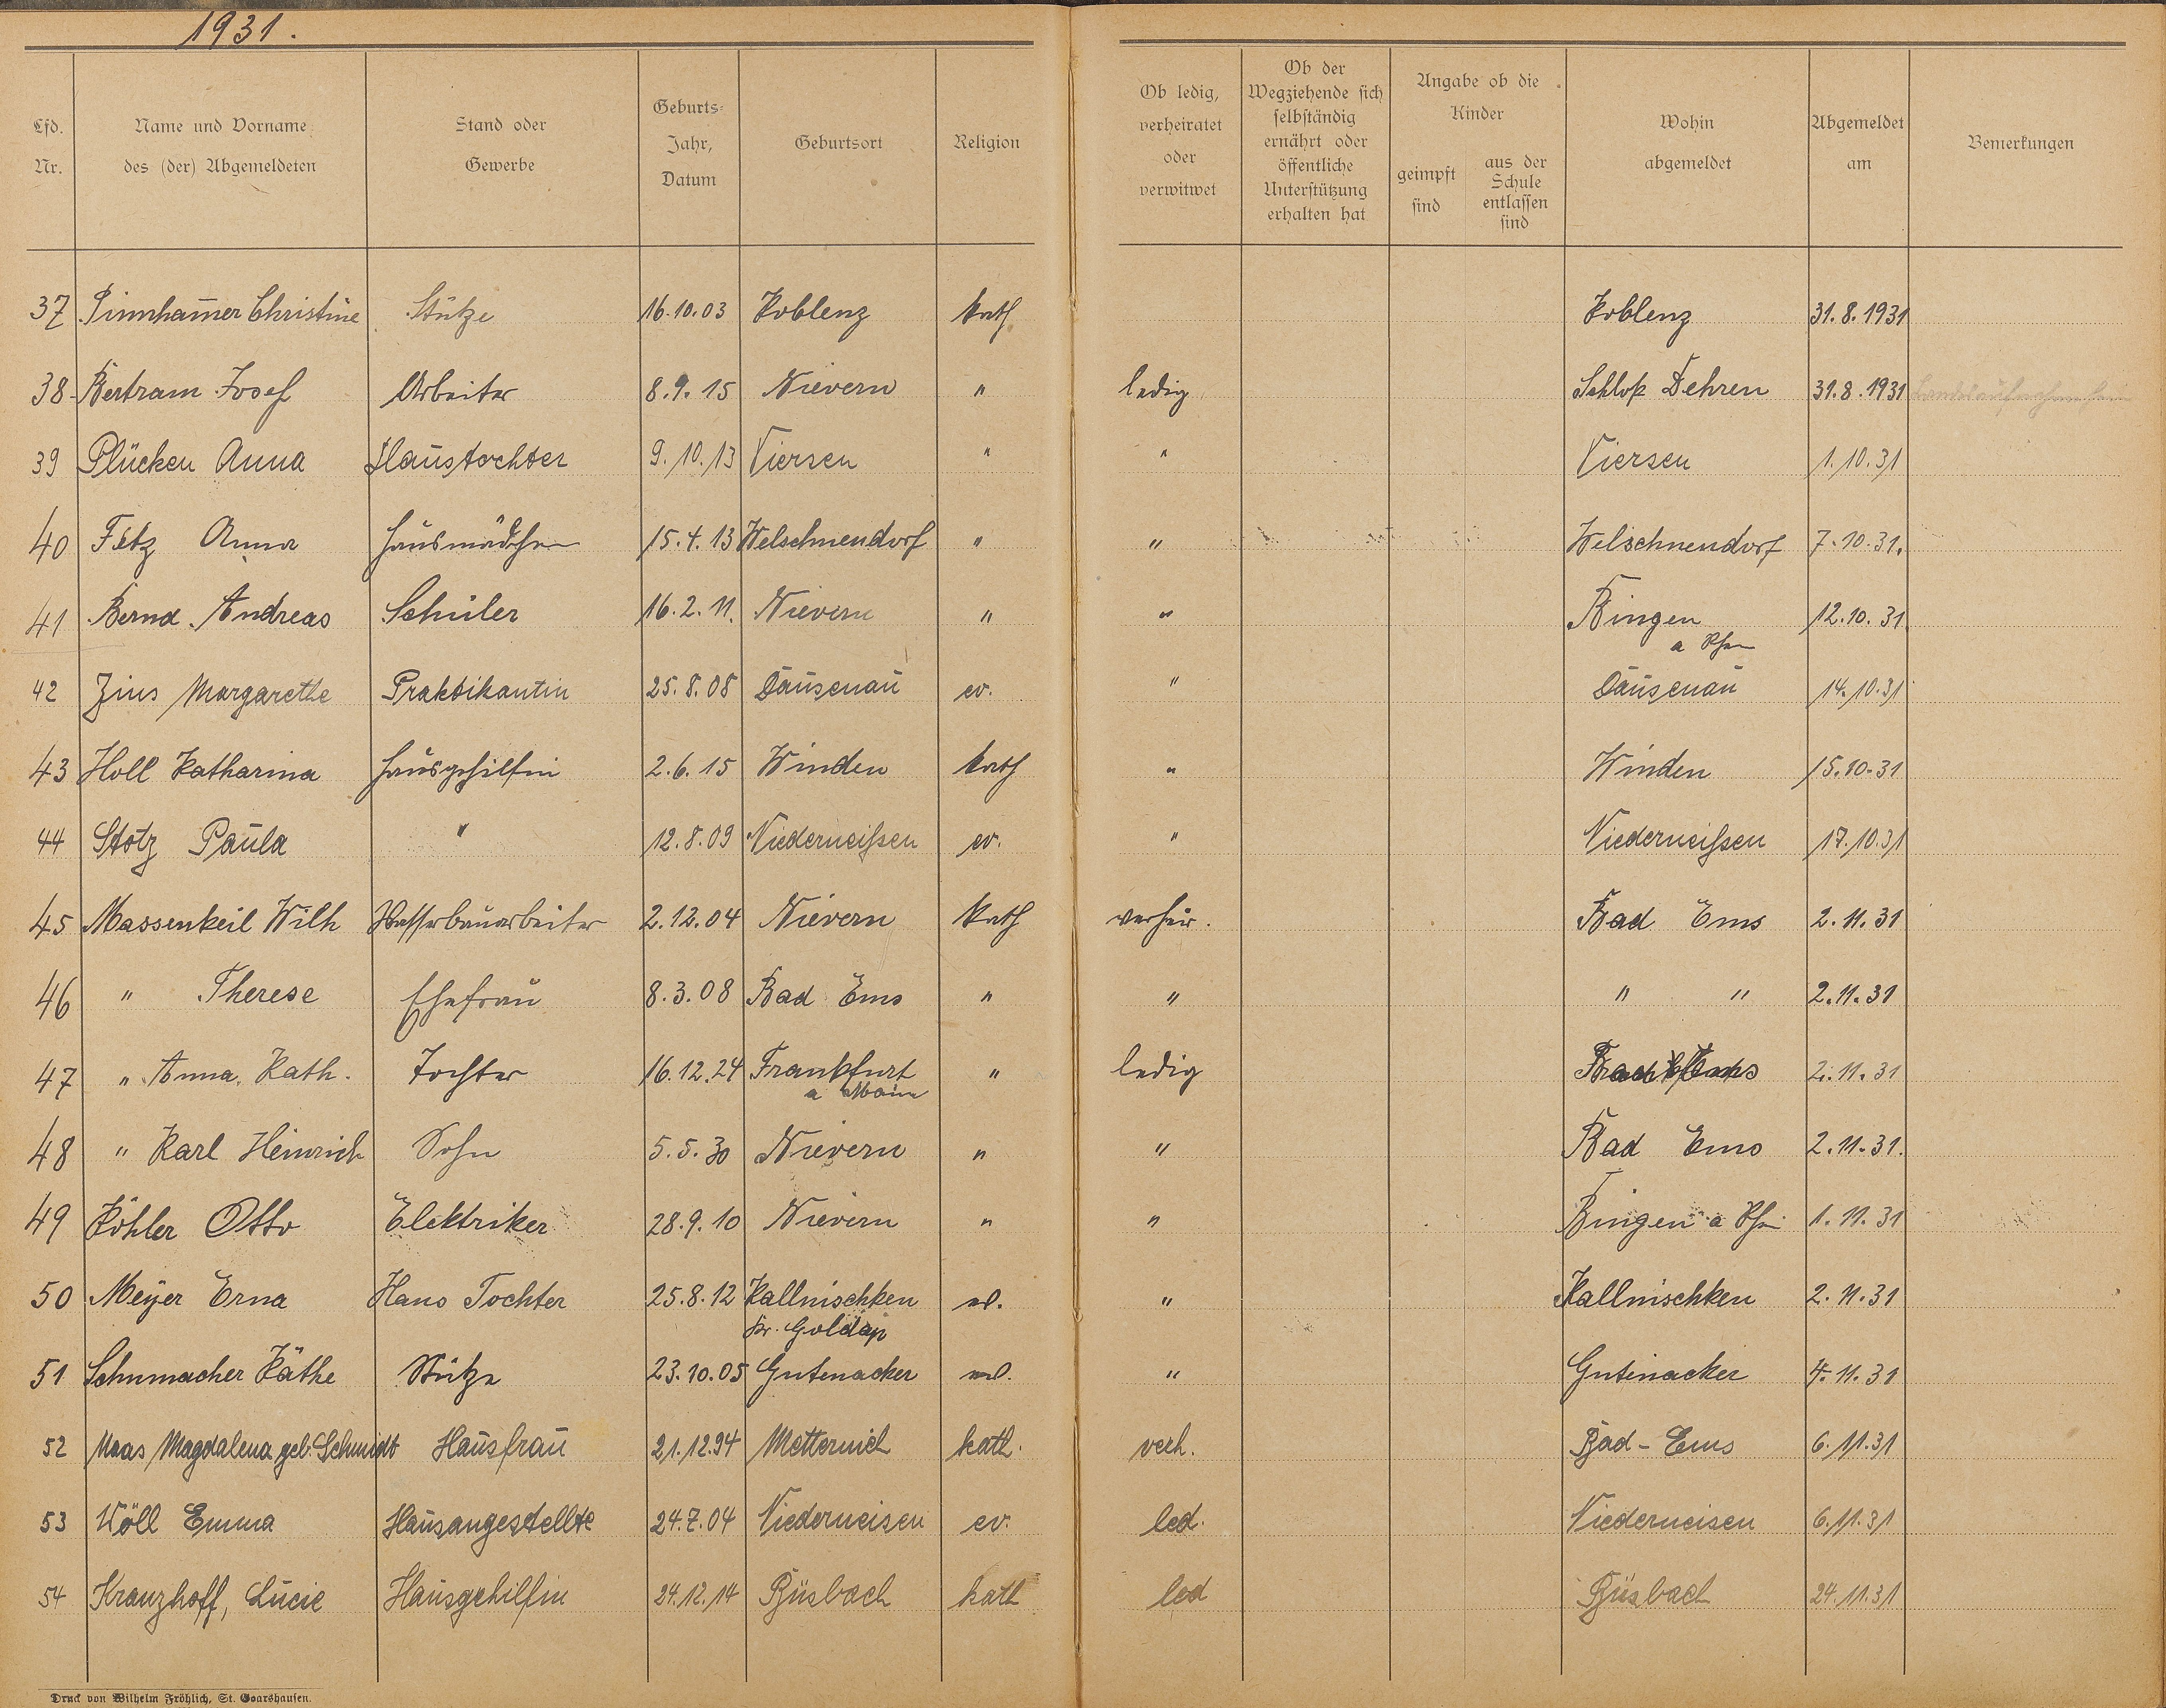 1931.
Lfd. Nr.
Name und Vorname des (der) Abgemeldeten
Stand oder Gewerbe
Geburts-Jahr, Datum
Geburtsort
Religion
Ob ledig, verheiratet oder verwitwet
Ob der Wegziehende sich selbständig ernährt oder öffentliche Unterstützung erhalten hat
Angabe ob die Kinder
geimpft sind
aus der Schule entlassen sind
Wohin abgemeldet
Abgemeldet am
Bemerkungen
37 Christine Stütze 16.10.03 Koblenz kath Koblenz 31.8.1931
38 Bertram Josef Arbeiter 8.9.15 Nievern " ledig Schloß Dehren 31.8.1931
39 Plücken Anna Haustochter 9.10.13 Viersen " " Viersen 1.10.31
40 Anna Hausmädchen 15.4.13 Welschnendorf " " Welschnendorf 7.10.31.
41 Bernd Andreas Schüler 16.2.11. Nievern " " Bingen 12.10.31.
a Rhein
42 Zins Margarethe Praktikantin 25.8.08 Dausenau ev. " Dausenau 14.10.31
43 Holl Katharina Hausgehilfin 2.6.15 Winden kath " Winden 15.10.31
44 Stotz Paula " 12.8.09 Niederneißen ev. " Niederneißen 17.10.31
45 Massenkeil Wilh Wasserbauarbeiter 2.12.04 Nievern kath verheir. Bad Ems 2.11.31
46 " Therese Ehefrau 8.3.08 Bad Ems " " " " 2.11.31
47 " Anna Kath. Tochter 16.12.24 Frankfurt " ledig Bad Ems 2.11.31
a Main
48 " Karl Heinrich Sohn 5.5.30 Nievern " " Bad Ems 2.11.31.
49 Köhler Otto Elektriker 28.9.10 Nievern " " Bingen a Rh 1.11.31
50 Meyer Erna Haus Tochter 25.8.12 Kallnischken " Kallnischken 2.11.31
Kr. Goldap
51 Schumacher Käthe Stütze 23.10.05 Gutenacker " Gutenacker 4.11.31
52 Maas Magdalena geb. Schmidt Hausfrau 21.12.94 Metternich kath. verh. Bad-Ems 6.11.31
53 Wöll Emma Hausangestellte 24.7.04 Niederneisen ev. led. Niederneisen 6.11.31
54 Kranzhoff, Lucie Hausgehilfin 24.12.14 Büsbach kath led Büsbach 24.11.31
Druck von Wilhelm Fröhlich, St. Goarshausen.